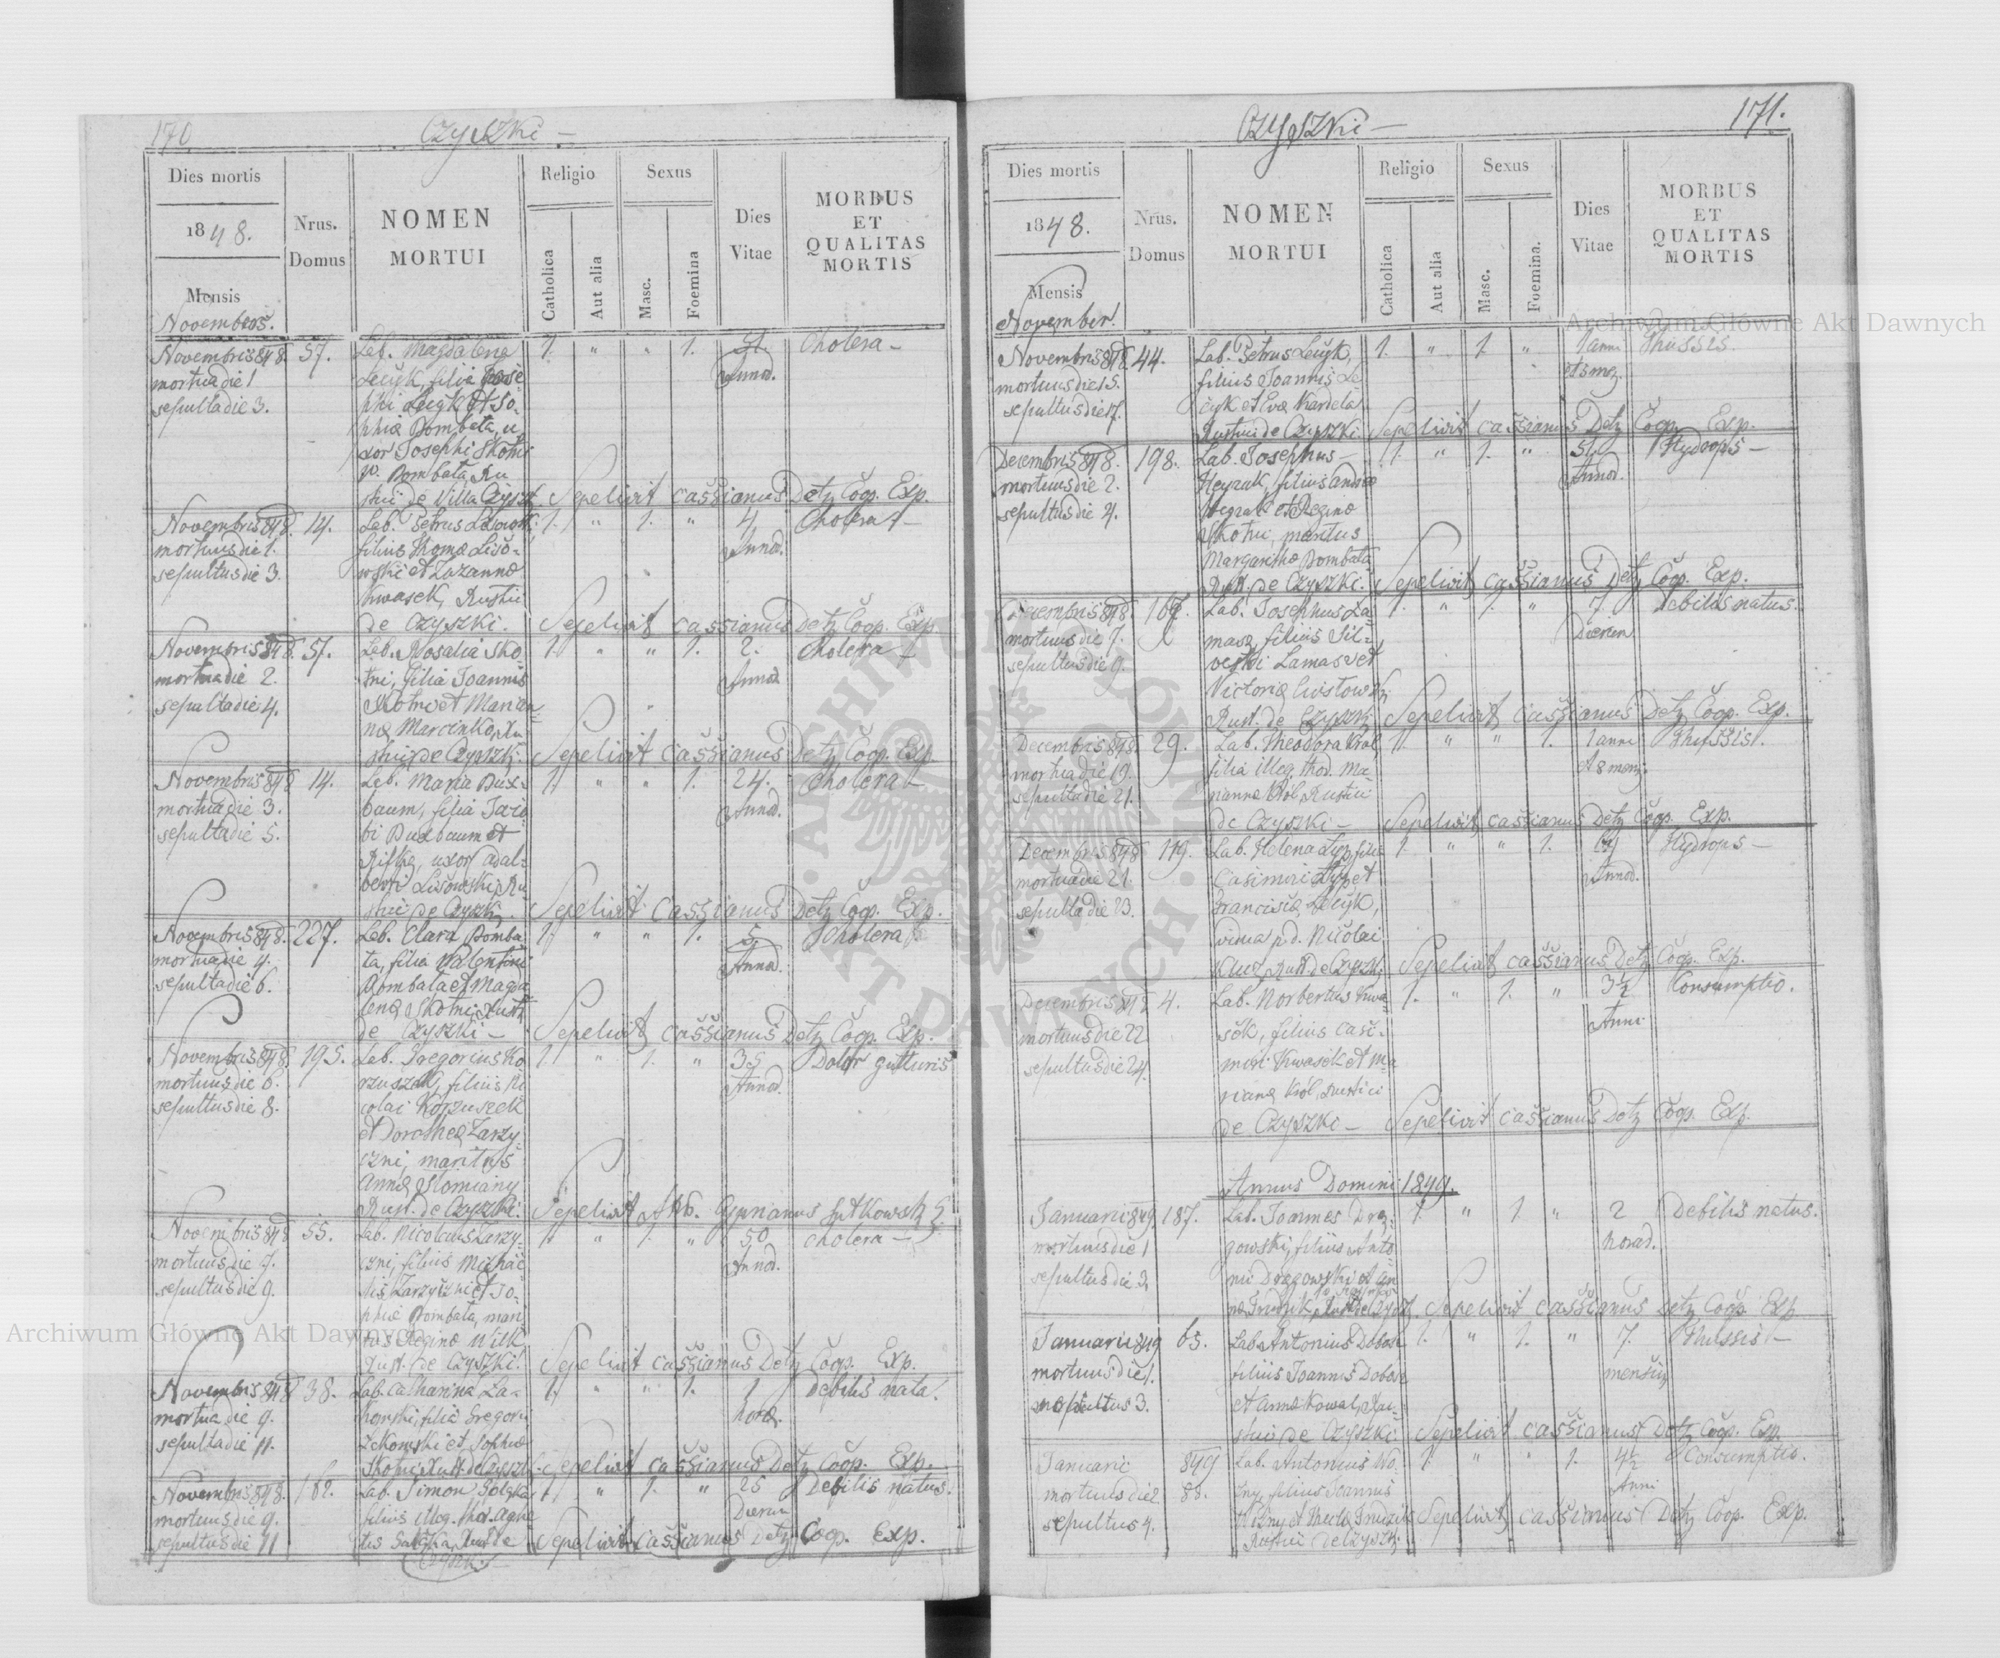 170. Czyszki –
Dies mortis
1848.
Mensis
Novembris.
Nrus.
Domus
NOMEN
MORTUI
Religio
Catholica
Aut alia
Sexus
Masc.
Foemina
Dies
Vitae
MORBUS
ET
QUALITAS
MORTIS
Novembris 848. 57. Lab. Magdalena 1. " " 1. Cholera –
mortua die 1 Lecyk, filia Jose Annor.
sepulta die 3. phi Lecyk et So-
phiæ Dombata, u-
xor Josephi Skotni
Dombata Ru
stici de Villa Czyszk Sepelivit Cassianus Detz Coop. Exp.
Novembris 848. 14. Lab. Petrus Lisowski 1. " 1. " 4 Cholera –
mortuus die 1. filius Thomæ Liso- Annor.
sepultus die 3. wski et Zuzannæ
Kwasek, Rustici
de Czyszki. Sepelivit Cassianus Detz Coop. Exp.
Novembris 848. 57. Lab. Rosalia Sko 1. " " 1. 2. Cholera –
mortua die 2. tni, filia Joannis Annor
sepulta die 4. Skotni et Marian-
næ Marcinko, Ru
stici de Czyszki. Sepelivit Cassianus Detz Coop. Exp.
Novembris 848 14. Lab. Maria Dux- 1. " " 1. 24. Cholera –
mortua die 3. baum, filia Jaco- Annor.
sepulta die 5. bi Duxbaum et
Rifka, uxor Adal-
berti Lisowski, Ru
stici de Czyszki. Sepelivit Cassianus Detz Coop. Exp.
Novembris 848. 227. Lab. Clara Domba- 1. " " 1. 5 Cholera
mortua die 4. ta, filia Valentini Annor.
sepulta die 6. Dombata et Magda
lenæ Skotni, Rust.
de Czyszki – Sepelivit Cassianus Detz Coop. Exp.
Novembris 848. 195. Lab. Gregorius Ko 1. " 1. " 35 Dolor gutturis
mortuus die 6. rzuszek, filius Ni Annor.
sepultus die 8. colai Korzuszek
et Dorotheæ Zarzy-
czni, maritus
Annæ Słomiany
Rust. de Czyszki. Sepelivit Cyprianus Sutkowski
Novembris 848 55. Lab. Nicolaus Zarzy- 1. " 1. " 50 Cholera –
mortuus die 7. czni, filius Michae Annor.
sepultus die 9. lis Zarzyczni et So-
phiæ Dombata, mari
tus Reginæ Wilk,
Rust. de Czyszki. Sepelivit Cassianus Detz Coop. Exp.
Novembris 848 38. Lab. Catharina Za- 1. " " 1. 1 Debilis nata.
mortua die 9. kowski, filia Gregorii horæ.
sepulta die 11. Zakowski et Sophiæ
Skotni, Rust. de Czyszki. Sepelivit Cassianus Detz Coop. Exp.
Novembris 848. 162. Lab. Simon Gałązka 1. " 1. " 25 Debilis natus.
mortuus die 9. filius illeg. thor. Agne Dierum
sepultus die 11 tis Gałązka, Rust. de Sepelivit Cassianus Detz Coop. Exp.
Czyszki –
Czyszki – 171.
Dies mortis
1848.
Mensis
November.
Nrus.
Domus
NOMEN
MORTUI
Religio
Catholica
Aut alia
Sexus
Masc.
Foemina.
Dies
Vitae
MORBUS
ET
QUALITAS
MORTIS
Novembris 848 44. Lab. Petrus Lecyk, 1. " 1. " 1 anni Thussis.
mortuus die 15. filius Joannis Le et 3 mez.
sepultus die 17. cyk et Evæ Kardela
Rustici de Czyszki. Sepelivit Cassianus Detz Coop. Exp.
Decembris 848. 198. Lab. Josephus – 1. " 1. " Hydrops –
mortuus die 2. filius Andreæ Annor.
sepultus die 4. et Reginæ
Skotni, maritus
Margarithæ Dombata
Rust. de Czyszki. Sepelivit Cassianus Detz Coop. Exp.
Decembris 848 167. Lab. Josephus La- 1. " 1. " 7 Debilis natus.
mortuus die 7. masz filius Sil- Dierum
sepultus die 9. vestri Lamasz et
Victoriæ
Rust. de Czyszki Sepelivit Cassianus Detz Coop. Exp.
Decembris 848. 29. Lab. Theodora Król, 1. " " 1. 1 anni Thussis.
mortua die 19. filia illeg. thor. Ma- et 8 menz.
sepulta die 21. riannæ Król, Rustici
de Czyszki – Sepelivit Cassianus Detz Coop. Exp.
Decembris 848 119. Lab. Helena filia 1. " " 1. 64 Hydrops –
mortua die 21. Casimiri et Annor.
sepulta die 23. Franciscæ Lecyk,
vidua p. d. Nicolai
Kluz, Rust. de Czyszki. Sepelivit Cassianus Detz Coop. Exp.
Decembris 848 4. Lab. Norbertus Kwa 1. " 1. " 3½ Consumptio.
mortuus die 22 sek, filius Casi- Anni
sepultus die 24. miri Kwasek et Ma
rianæ Król, Rustici
de Czyszki – Sepelivit Cassianus Detz Coop. Exp.
Annus Domini 1849.
Januarii 849 187. Lab. Joannes Drą- 1. " 1. " 2 Debilis natus.
mortuus die 1 gowski, filius Anto- horar.
sepultus die 3. nii Drągowski et An
næ Rust. de Czyszki. Sepelivit Cassianus Detz Coop. Exp
Januarii 849 65. Lab. Antonius Dobosz 1. " 1. " 7. Thussis –
mortuus die 1. filius Joannis Dobosz mensium
sepultus 3. et Annæ Kowal, Ru-
stici de Czyszki Sepelivit Cassianus Detz Coop. Exp.
Januarii 849 Lab. Antonius Wo. 1. " " 1. 4½ Consumptio.
mortuus die 2. 88. źny, filius Joannis Anni
sepultus 4. Woźny et Sepelivit Cassianus Detz Coop. Exp.
Rustici de Czyszki.
Archiwum Główne Akt Dawnych
Archiwum Główne Akt Dawnych
ARCHIWUM GŁÓWNE AKT DAWNYCH